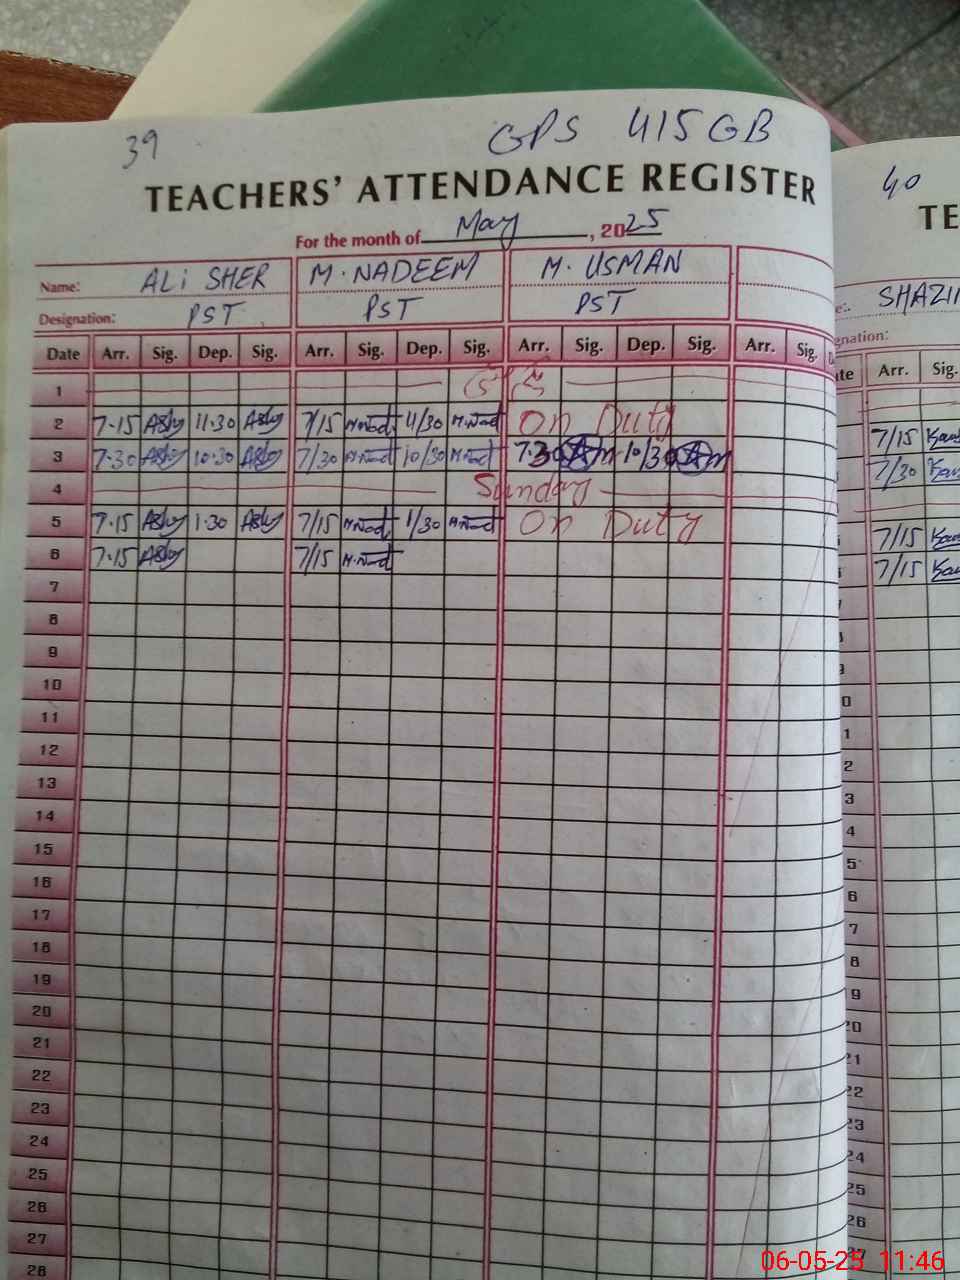 39
GPS 415 GB
TEACHERS' ATTENDANCE REGISTER
For the month of May, 2025
Name: ALI SHER M. NADEEM M. USMAN
Designation: PST PST PST
Date Arr. Sig. Dep. Sig. Arr. Sig. Dep. Sig. Arr. Sig. Dep. Sig. Arr. Sig.
1
2 7.15 11.30 7/15 11/30 On Duty
3 7.30 10.30 7/30 10/30 7.30 10/30
4 Sunday
5 7.15 1.30 7/15 1/30 On Duty
6 7.15 7/15
7
8
9
10
11
12
13
14
15
16
17
18
19
20
21
22
23
24
25
26
27
28
40
TE
SHAZI
gnation:
te Arr. Sig.
7/15
7/30
7/15
7/15
06-05-25 11:46